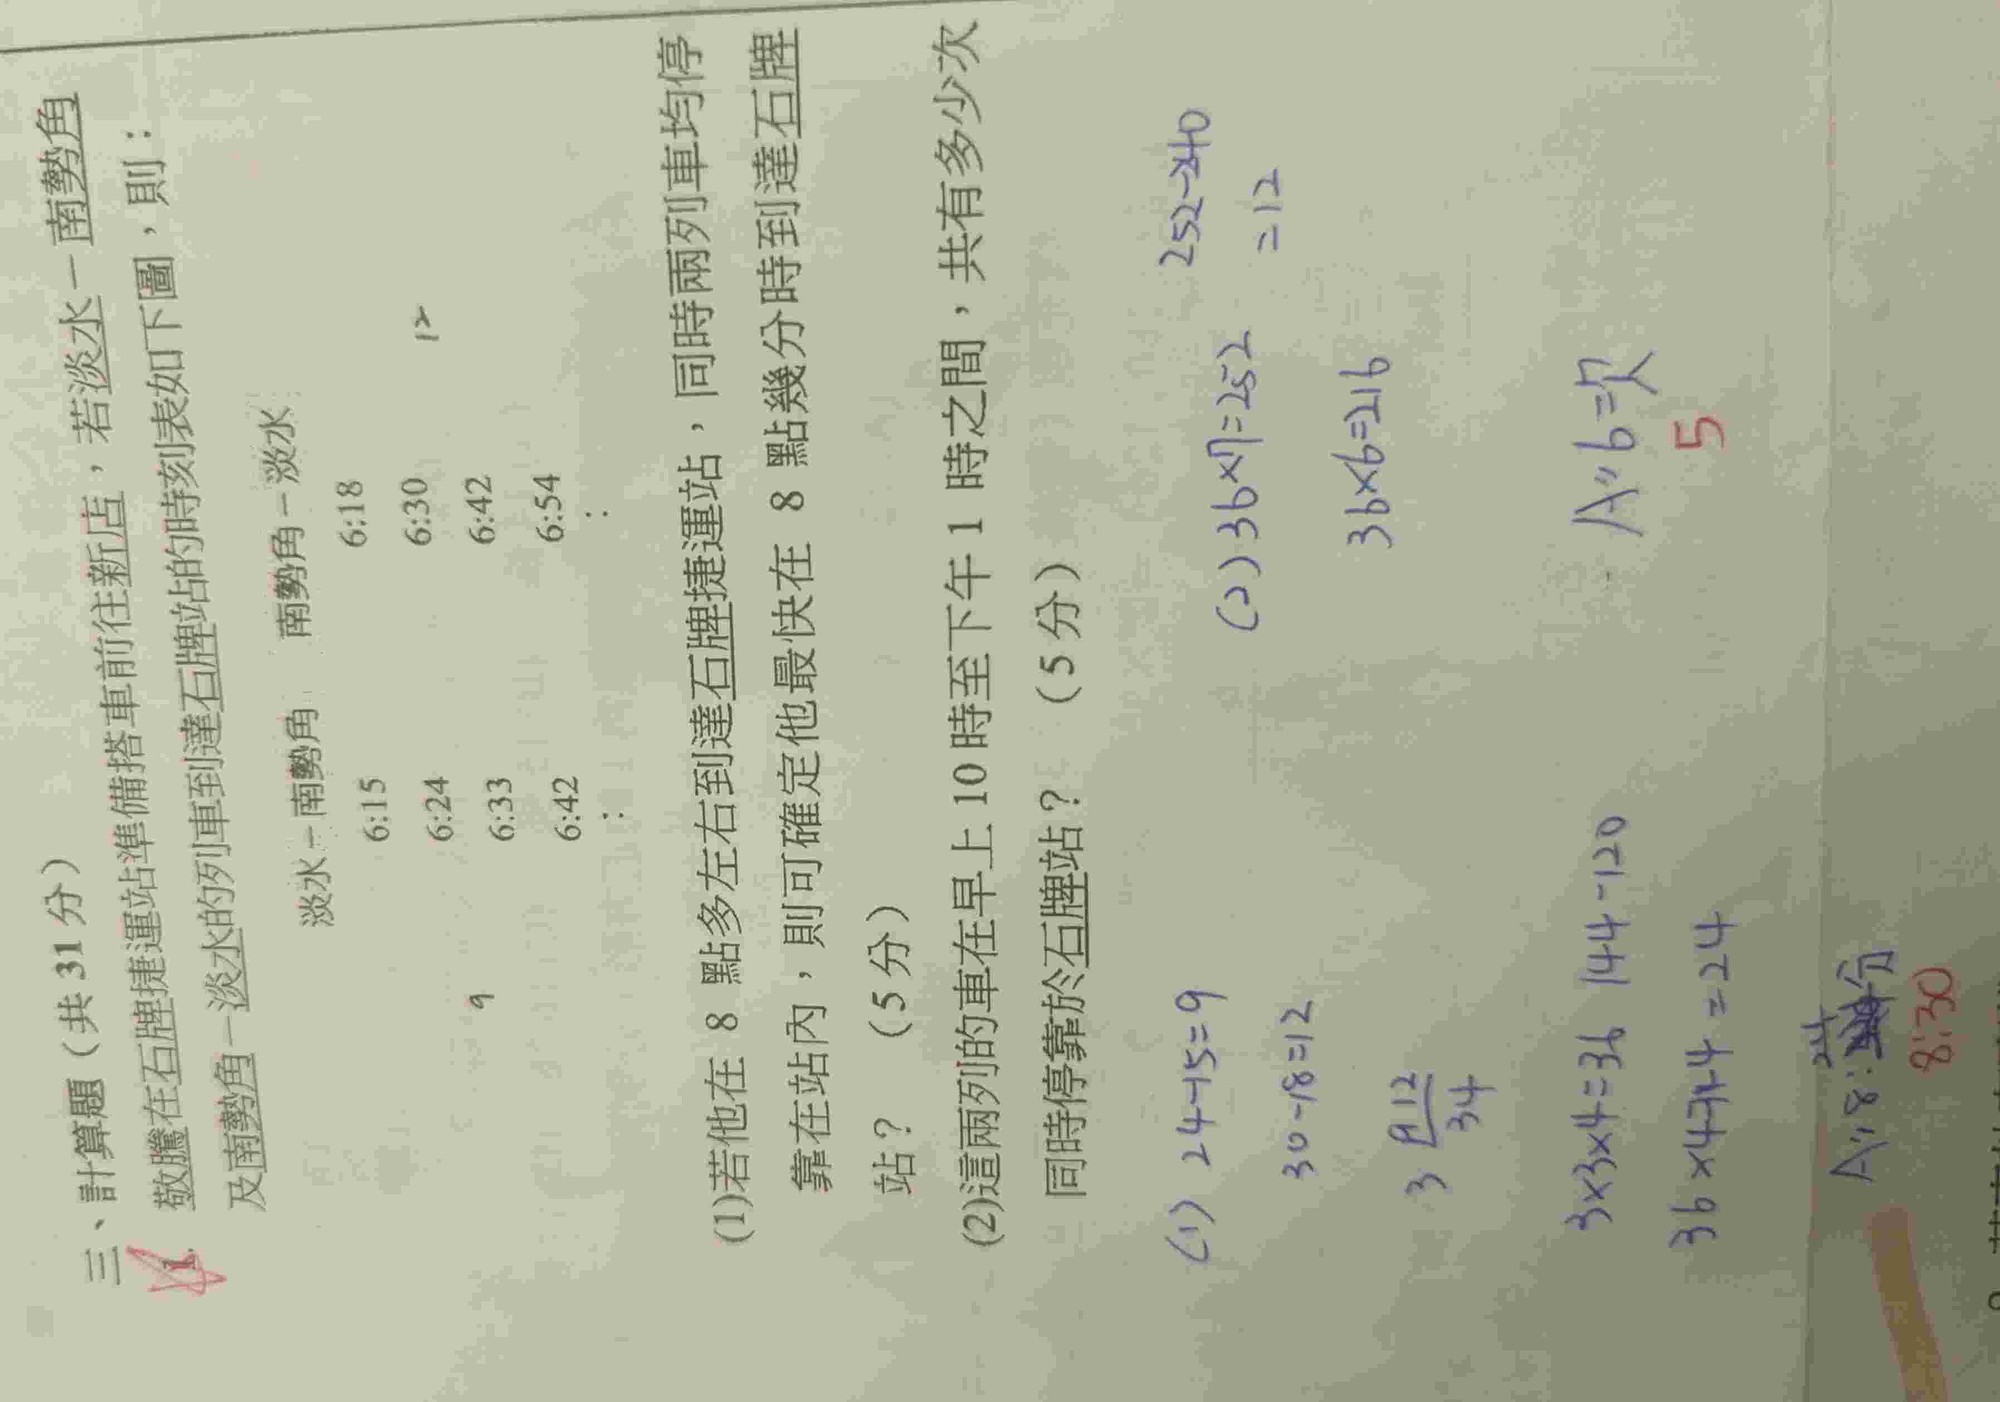 三、計算題（共 31 分）
1. 敬騰在石牌捷運站準備搭車前往新店，若淡水－南勢角
及南勢角－淡水的列車到達石牌站的時刻表如下圖，則：
淡水－南勢角 南勢角－淡水
6:15 6:18
6:24 6:30 12
9 6:33 6:42
6:42 6:54
: :
(1)若他在 8 點多左右到達石牌捷運站，同時兩列車均停
靠在站內，則可確定他最快在 8 點幾分時到達石牌
站？（5 分）
(2)這兩列的車在早上 10 時至下午 1 時之間，共有多少次
同時停靠於石牌站？（5 分）
(1) 24-15=9
30-18=12
3 9 12
3 4
3×3×4=36 144-120
36×4=144 =24
A:8:24分
8:30
(2) 36×7=252 252-240
=12
36×6=216
A:6=次
5